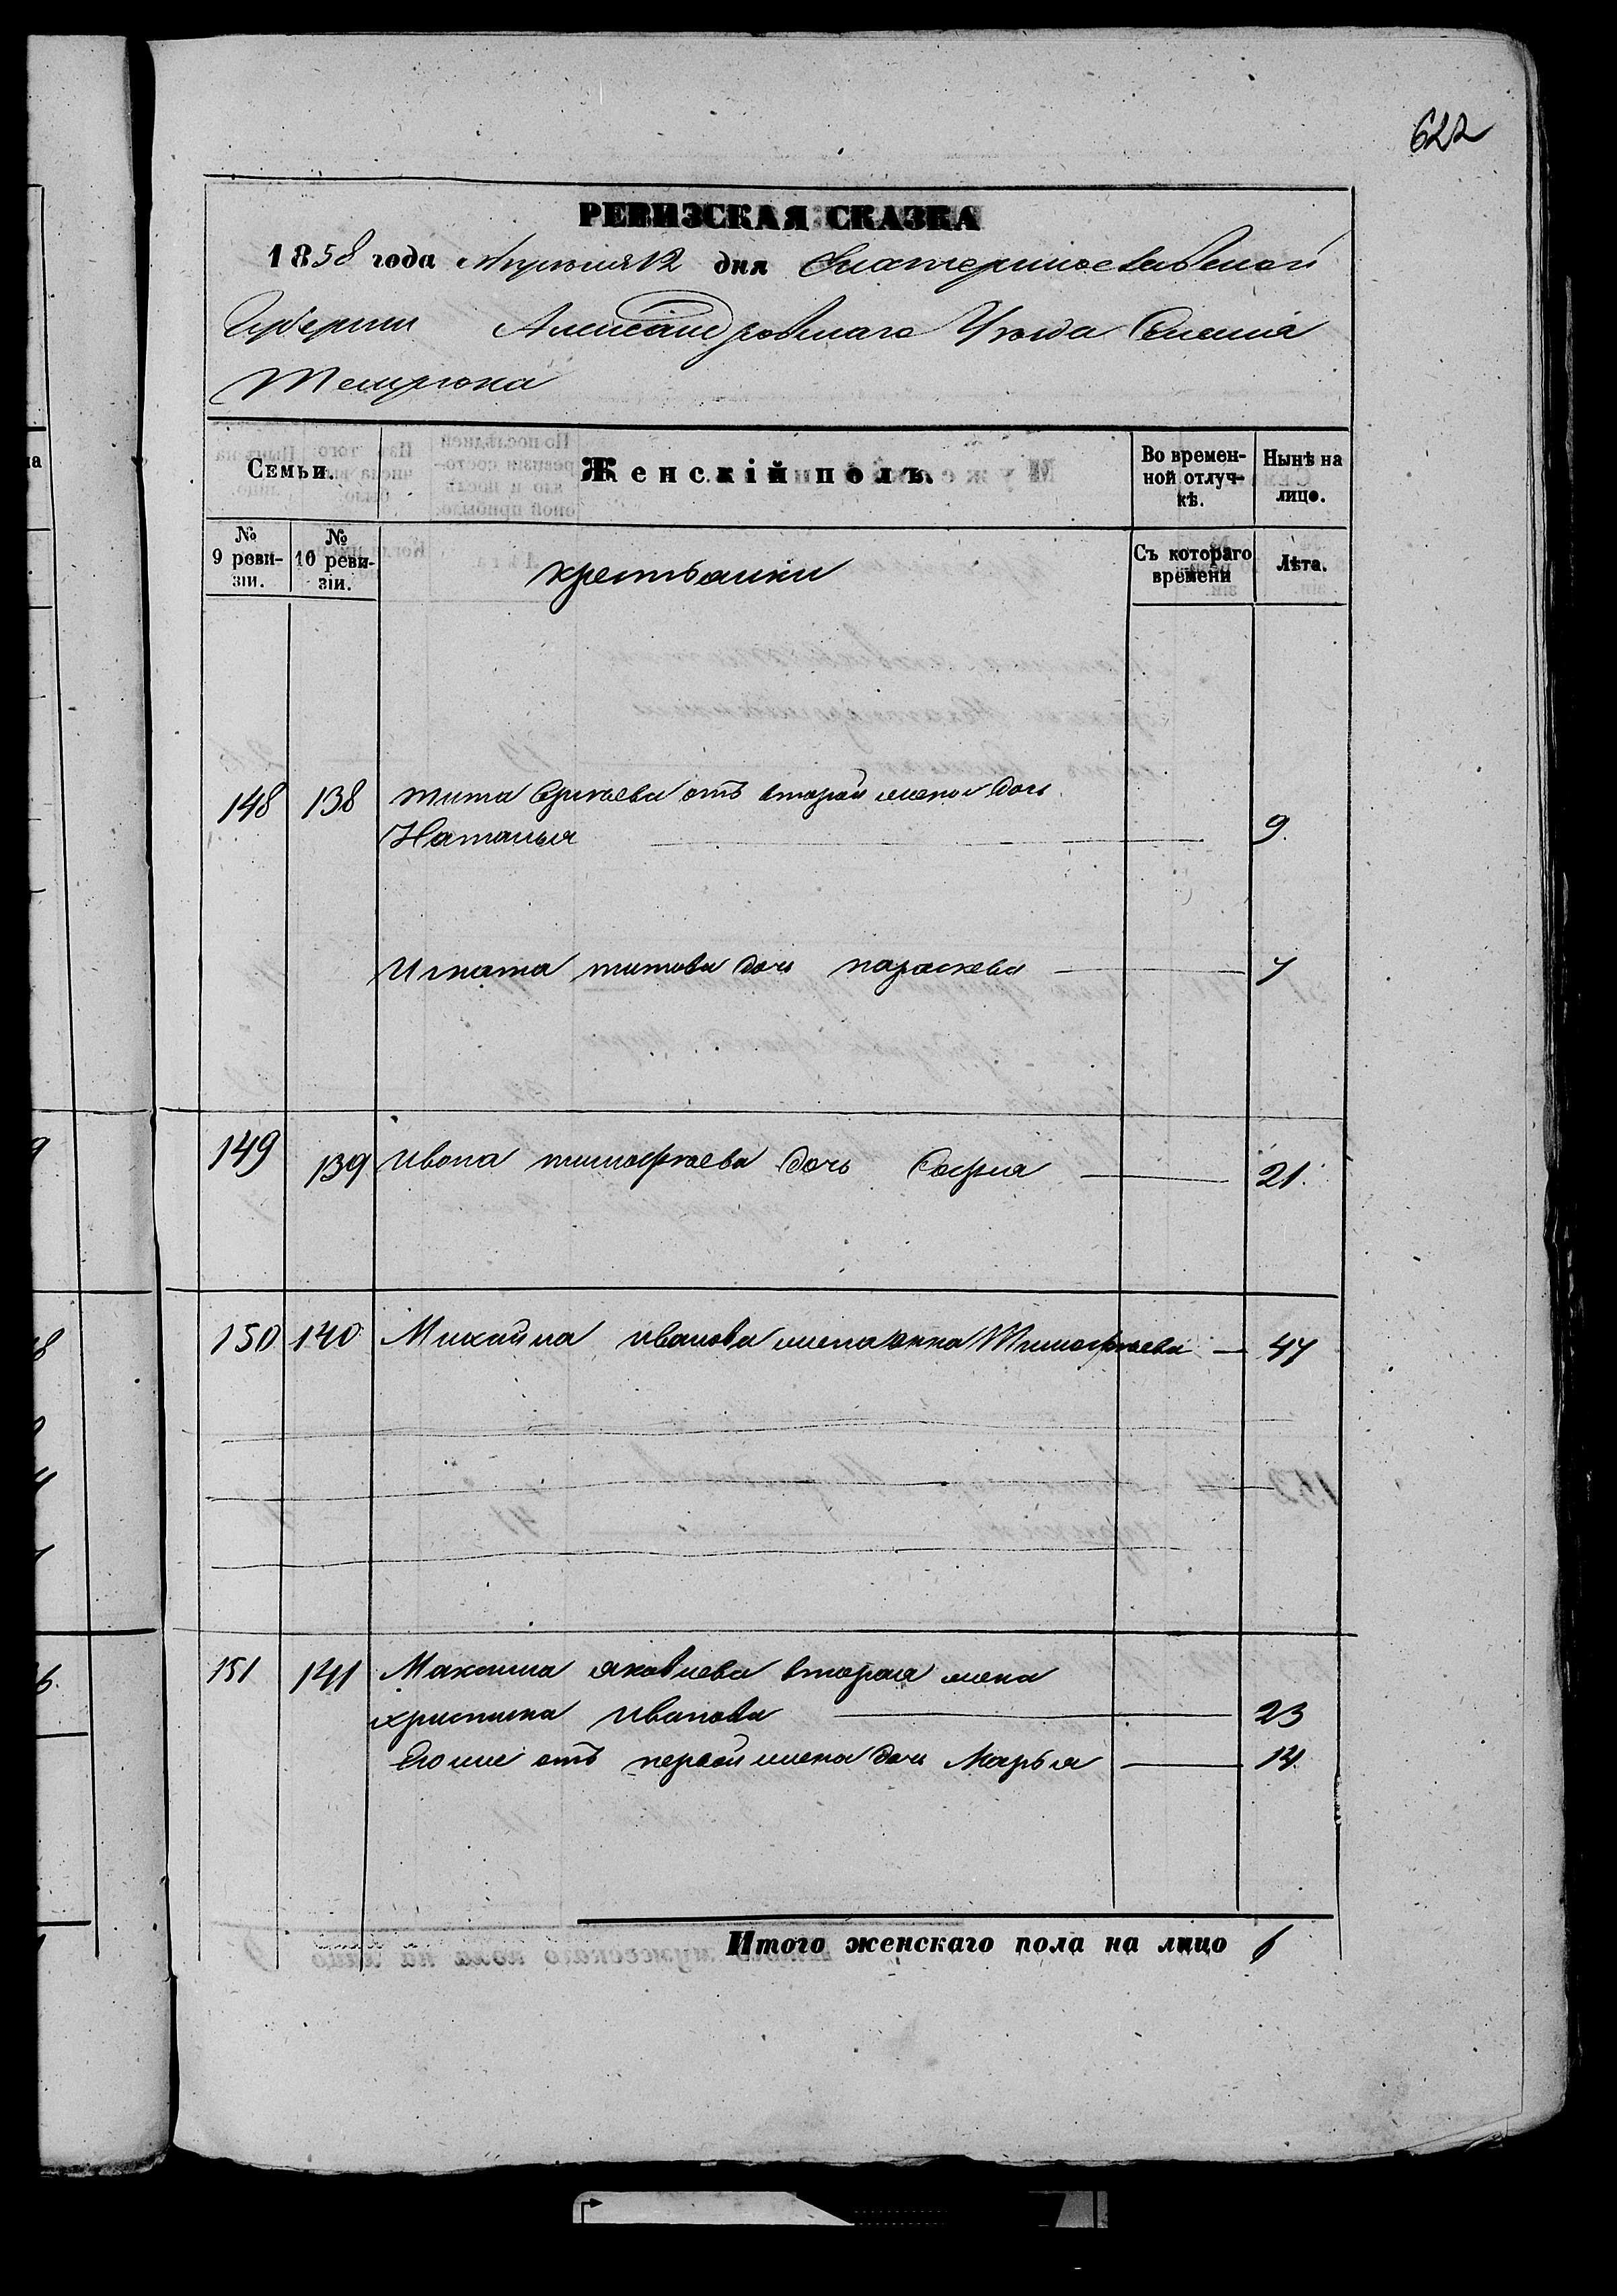 622
РЕВИЗСКАЯ СКАЗКА
1858 года Апреля 12 дня Екатеринославской
Губернии Александровскаго Уезда Селенія
Темрюка
Семьи.
Женскій полъ.
Во времен-
ной отлуч-
кѣ.
Нынѣ на
лицо.
№
9 реви-
зіи.
№
10 реви-
зіи.
крестьянки
Съ котораго
времени
Лѣта.
148 138 Тита Сергѣева отъ второй жены дочь
Наталья 9
Игната титова дочь параскева 7
149 139 Ивана тимофѣева дочь София 21
150 140 Михайла иванова жена анна Тимофѣева 47
151 141 Максима яковлева вторая жена
христина Иванова 23
Его же отъ первой жены дочь Марья 14
Итого женскаго пола на лицо 6